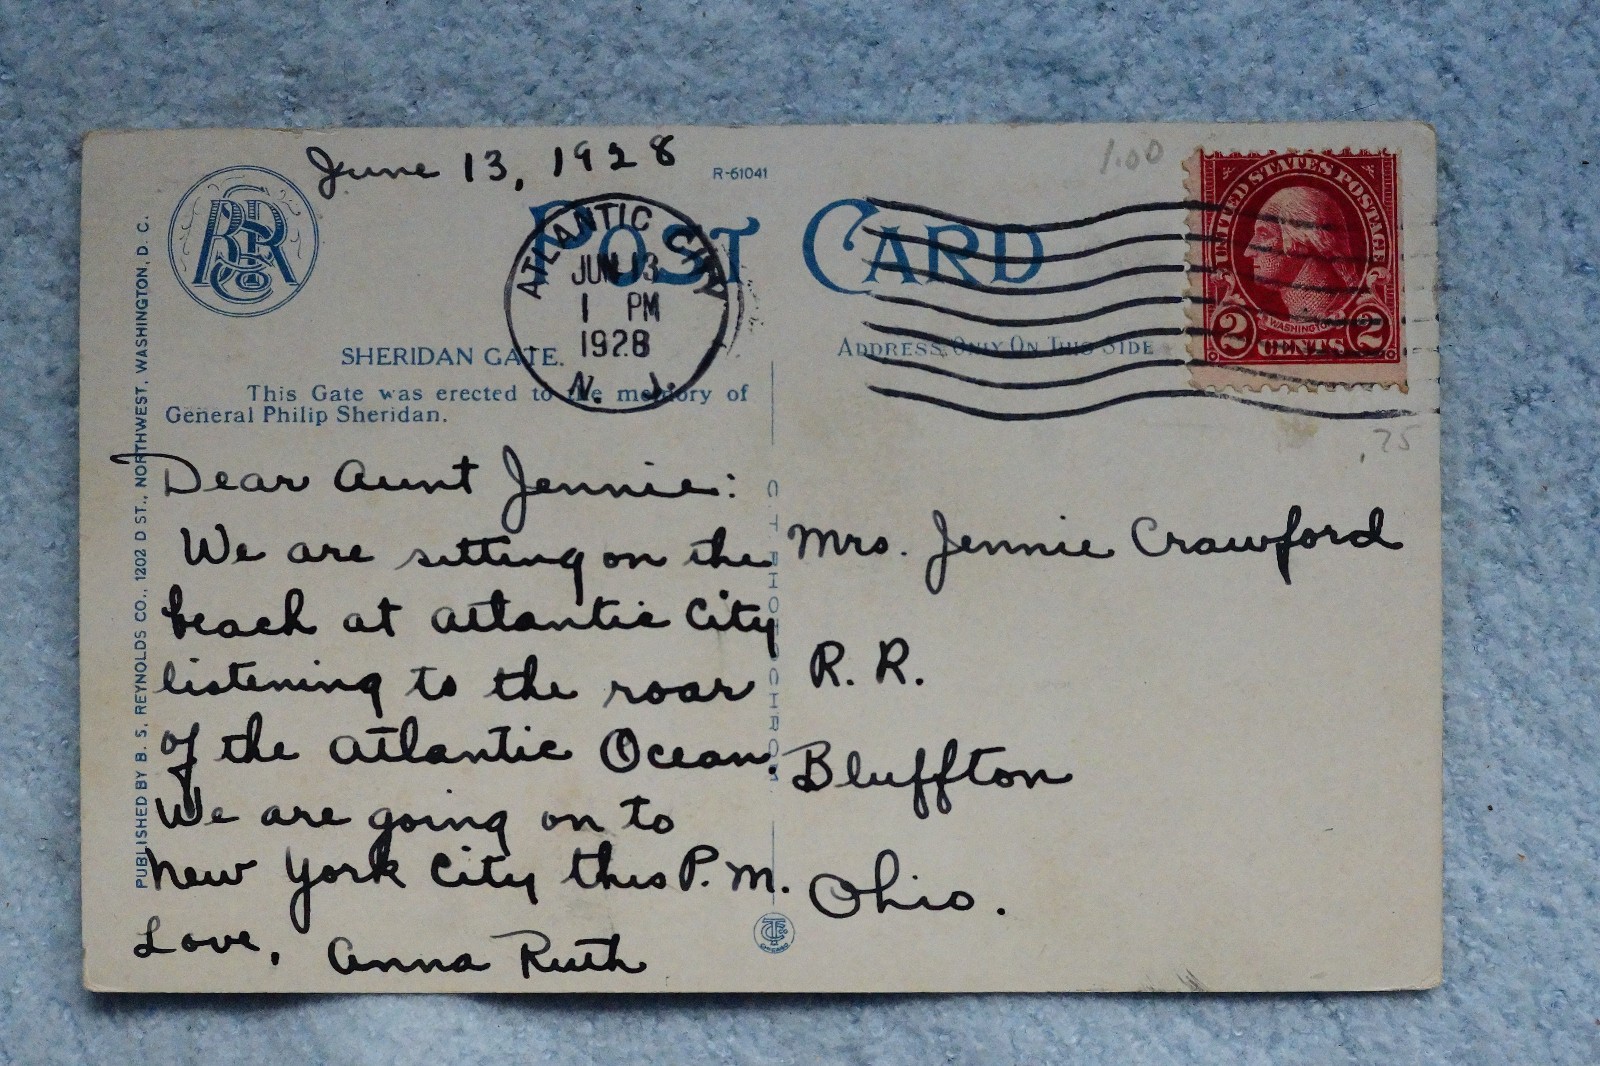 June 13, 1928
R-61041
1.00
BSRCo
POST CARD
ATLANTIC CITY
JUN 13
1 PM
1928
N. J.
UNITED STATES POSTAGE
WASHINGTON
2 CENTS 2
SHERIDAN GATE.
This Gate was erected to the memory of
General Philip Sheridan.
ADDRESS ONLY ON THIS SIDE
.75
PUBLISHED BY B. S. REYNOLDS CO., 1202 D ST., NORTHWEST, WASHINGTON, D. C.
Dear Aunt Jennie:
We are sitting on the
beach at Atlantic City
listening to the roar
of the Atlantic Ocean.
We are going on to
New York City this P.M.
Love, Anna Ruth
C. T. PHOTOCHROM
Mrs. Jennie Crawford
R. R.
Bluffton
Ohio.
CHICAGO